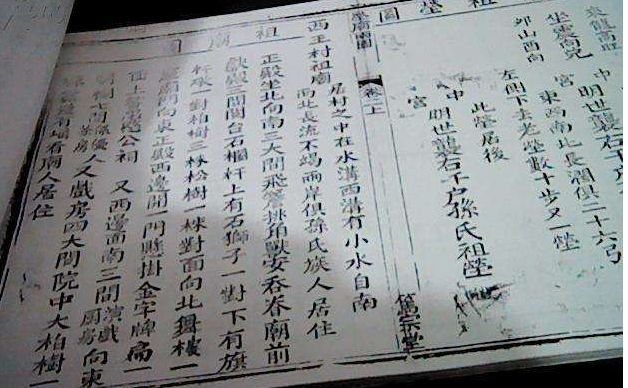 祖塋圖
中 明世襲右千戶
坐震向兌 宮 東西南北長濶俱二十六弓
山酉向 左側下去老塋數十步又一塋
此塋居後
中 明世襲右千戶孫氏祖塋
宮
篤宗堂
塋廟圖 卷之上
祖廟圖
西王村祖廟 居村之中在水溝西溝有小水自南
南北長流不竭兩岸俱孫氏族人居住
正殿坐北向南三大間飛簷挑角獸安吞脊廟前
獻殿三間閱台石欄杆上有石獅子一對下有旗
杆一對柏樹三株松樹一株對面向北舞樓一
廟門向東正殿西邊開一門懸掛金字牌匾一
面上書 公祠 又西邊面南三間演戲 廚房向東
七間 茶房 優人又戲房四大間院中大柏樹一
看廟人居住